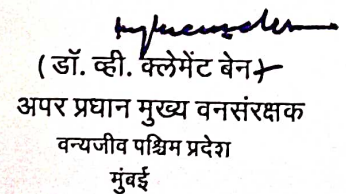 (डॉ. व्ही. क्लेमेंट बेन)
अपर प्रधान मुख्य वनसंरक्षक
वन्यजीव पश्चिम प्रदेश
मुंबई